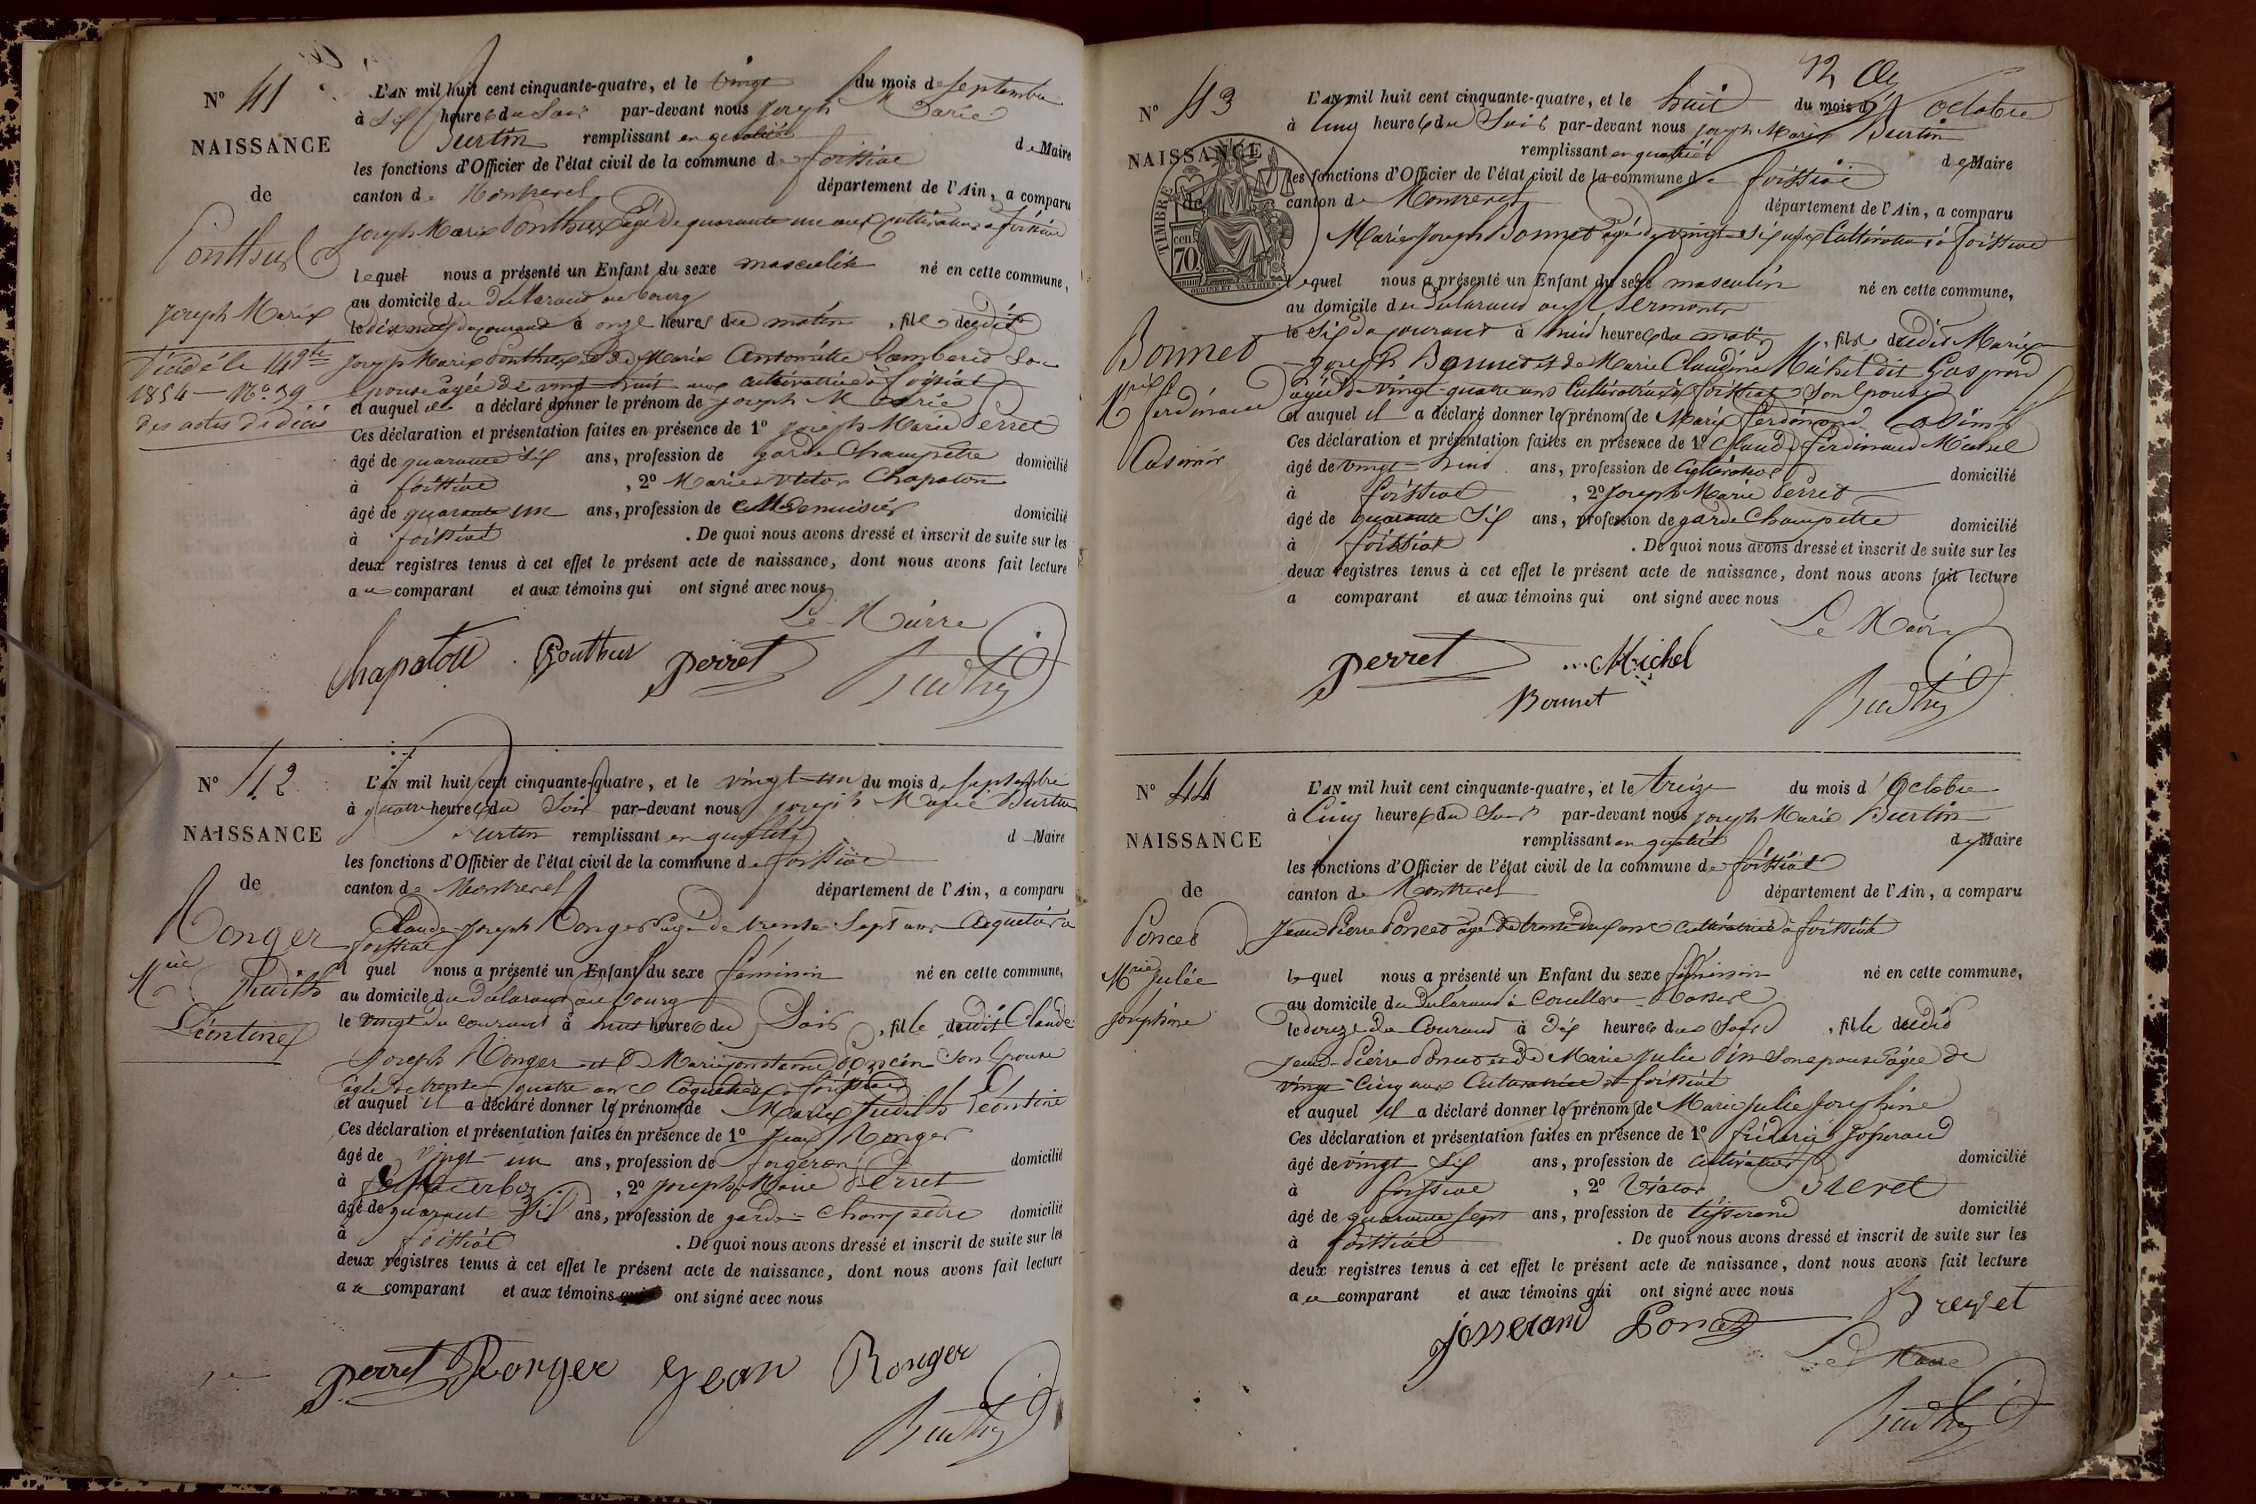 N° 41
NAISSANCE
de
Ponthus
Joseph Marie
Décédé le 14 9bre
1854 — N° 39
des actes de décès
L'AN mil huit cent cinquante-quatre, et le vingt du mois de septembre
à six heures du soir par-devant nous Joseph Marie
Burtin remplissant en qualité de Maire
les fonctions d'Officier de l'état civil de la commune de foissiat
canton de Montrevel département de l'Ain, a comparu
Joseph Marie Ponthus âgé de quarante un ans cultivateur à foissiat
lequel nous a présenté un Enfant du sexe masculin né en cette commune,
au domicile du déclarant au bourg
le dix neuf du courant à onze heures du matin, fils dudit
Joseph Marie Ponthus et de Marie Antoinette Lambered Son
Epouse agée de vingt huit ans cultivatrice à foissiat
et auquel il a déclaré donner le prénom de joseph Marie
Ces déclaration et présentation faites en présence de 1° joseph Marie Perret
âgé de quarante six ans, profession de garde Champêtre domicilié
à foissiat, 2° Marie Victor Chapaton
âgé de quarante un ans, profession de Menuisier domicilié
à foissiat. De quoi nous avons dressé et inscrit de suite sur les
deux registres tenus à cet effet le présent acte de naissance, dont nous avons fait lecture
au comparant et aux témoins qui ont signé avec nous
Le Maire
Chapaton Ponthus perret Burtin
N° 42
NAISSANCE
de
Ronger
Mie Judith
Léontine
L'AN mil huit cent cinquante-quatre, et le vingt-un du mois de septembre
à quatre heures du Soir par-devant nous joseph Marie Burtin
Burtin remplissant en qualité d Maire
les fonctions d'Officier de l'état civil de la commune de foissiat
canton de Montrevel département de l'Ain, a comparu
Claude Joseph Ronger agé de trente Sept ans Coquetier à
foissiat
quel nous a présenté un Enfant du sexe féminin né en cette commune,
au domicile du déclarant au bourg
le vingt du courant à huit heures du Soir, fille dudit Claude
Joseph Ronger et de Marie Constance Poncin Son Epouse
agée de trente quatre ans Coquetière à foissiat
et auquel il a déclaré donner le prénom de Marie Judith Léontine
Ces déclaration et présentation faites en présence de 1° Jean Ronger
âgé de vingt-un ans, profession de forgeron domicilié
à, 2° joseph Marie Perret
âgé de quarante six ans, profession de garde-Champêtre domicilié
à foissiat. De quoi nous avons dressé et inscrit de suite sur les
deux registres tenus à cet effet le présent acte de naissance, dont nous avons fait lecture
au comparant et aux témoins qui ont signé avec nous
perret Ronger Jean Ronger
Burtin
12
N° 43
NAISSANCE
de
TIMBRE
70 cen
Bonnet
Mie ferdinand
Casimir
L'AN mil huit cent cinquante-quatre, et le huit du mois d'octobre
à cinq heures du Soir par-devant nous joseph Marie Burtin
remplissant en qualité de Maire
les fonctions d'Officier de l'état civil de la commune de foissiat
canton de Montrevel département de l'Ain, a comparu
Marie Joseph Bonnet agé de vingt six ans Cultivateur à foissiat
lequel nous a présenté un Enfant du sexe masculin né en cette commune,
au domicile du déclarant aux Sermonts
le Six du courant à huit heures du matin, fils dudit Marie
Joseph Bonnet et de Marie Claudine Michel dit Gaspard
agée de vingt-quatre ans Cultivatrice à foissiat Son Epouse
et auquel il a déclaré donner le prénom de Marie ferdinand Casimir
Ces déclaration et présentation faites en présence de 1° Claude ferdinand Michel
âgé de vingt-huit ans, profession de Cultivateur domicilié
à foissiat, 2° Joseph Marie Perret
âgé de quarante Six ans, profession de garde Champêtre domicilié
à foissiat. De quoi nous avons dressé et inscrit de suite sur les
deux registres tenus à cet effet le présent acte de naissance, dont nous avons fait lecture
a comparant et aux témoins qui ont signé avec nous
Le Maire
perret Michel
Bonnet Burtin
N° 44
NAISSANCE
de
Poncet
Mrie Julie
Josephine
L'AN mil huit cent cinquante-quatre, et le treize du mois d'Octobre
à Cinq heures du Soir par-devant nous joseph Marie Burtin
remplissant en qualité de Maire
les fonctions d'Officier de l'état civil de la commune de foissiat
canton de Montrevel département de l'Ain, a comparu
Jean Pierre Poncet agé de trente deux ans cultivateur à foissiat
lequel nous a présenté un Enfant du sexe féminin né en cette commune,
au domicile du déclarant à
le douze du Courant à Dix heures du Soir, fille dudit
Jean-Pierre Poncet et de Marie Julie Pin Son epouse agée de
vingt-Cinq ans Cultivatrice à foissiat
et auquel il a déclaré donner le prénom de Marie Julie Josephine
Ces déclaration et présentation faites en présence de 1° frédéric Josserand
âgé de vingt Six ans, profession de cultivateur domicilié
à foissiat, 2° Viator Breret
âgé de quarante sept ans, profession de tisserand domicilié
à foissiat. De quoi nous avons dressé et inscrit de suite sur les
deux registres tenus à cet effet le présent acte de naissance, dont nous avons fait lecture
au comparant et aux témoins qui ont signé avec nous
Josserand Poncet
Le Maire
Burtin